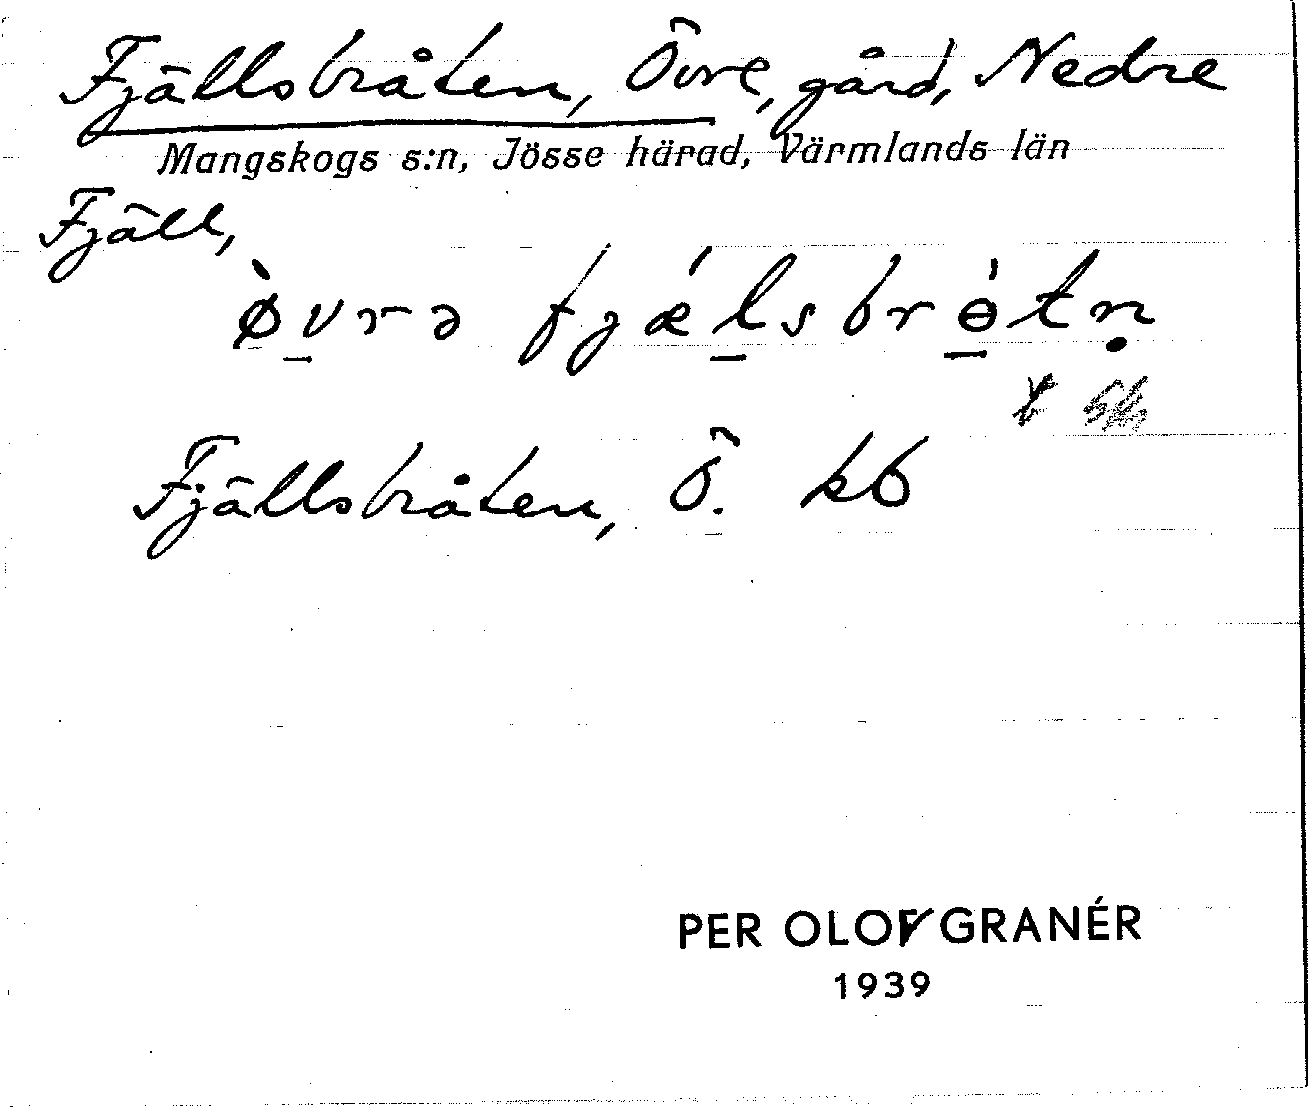 Fjällsbråten, Övre, gård, Nedre
Mangskogs s:n, Jösse härad, Värmlands län
Fjäll,
ø̀vrə fjǽlsbrɵ̀tṇ
Fjällsbråten, Ö. kb
PER OLOV GRANÉR
1939